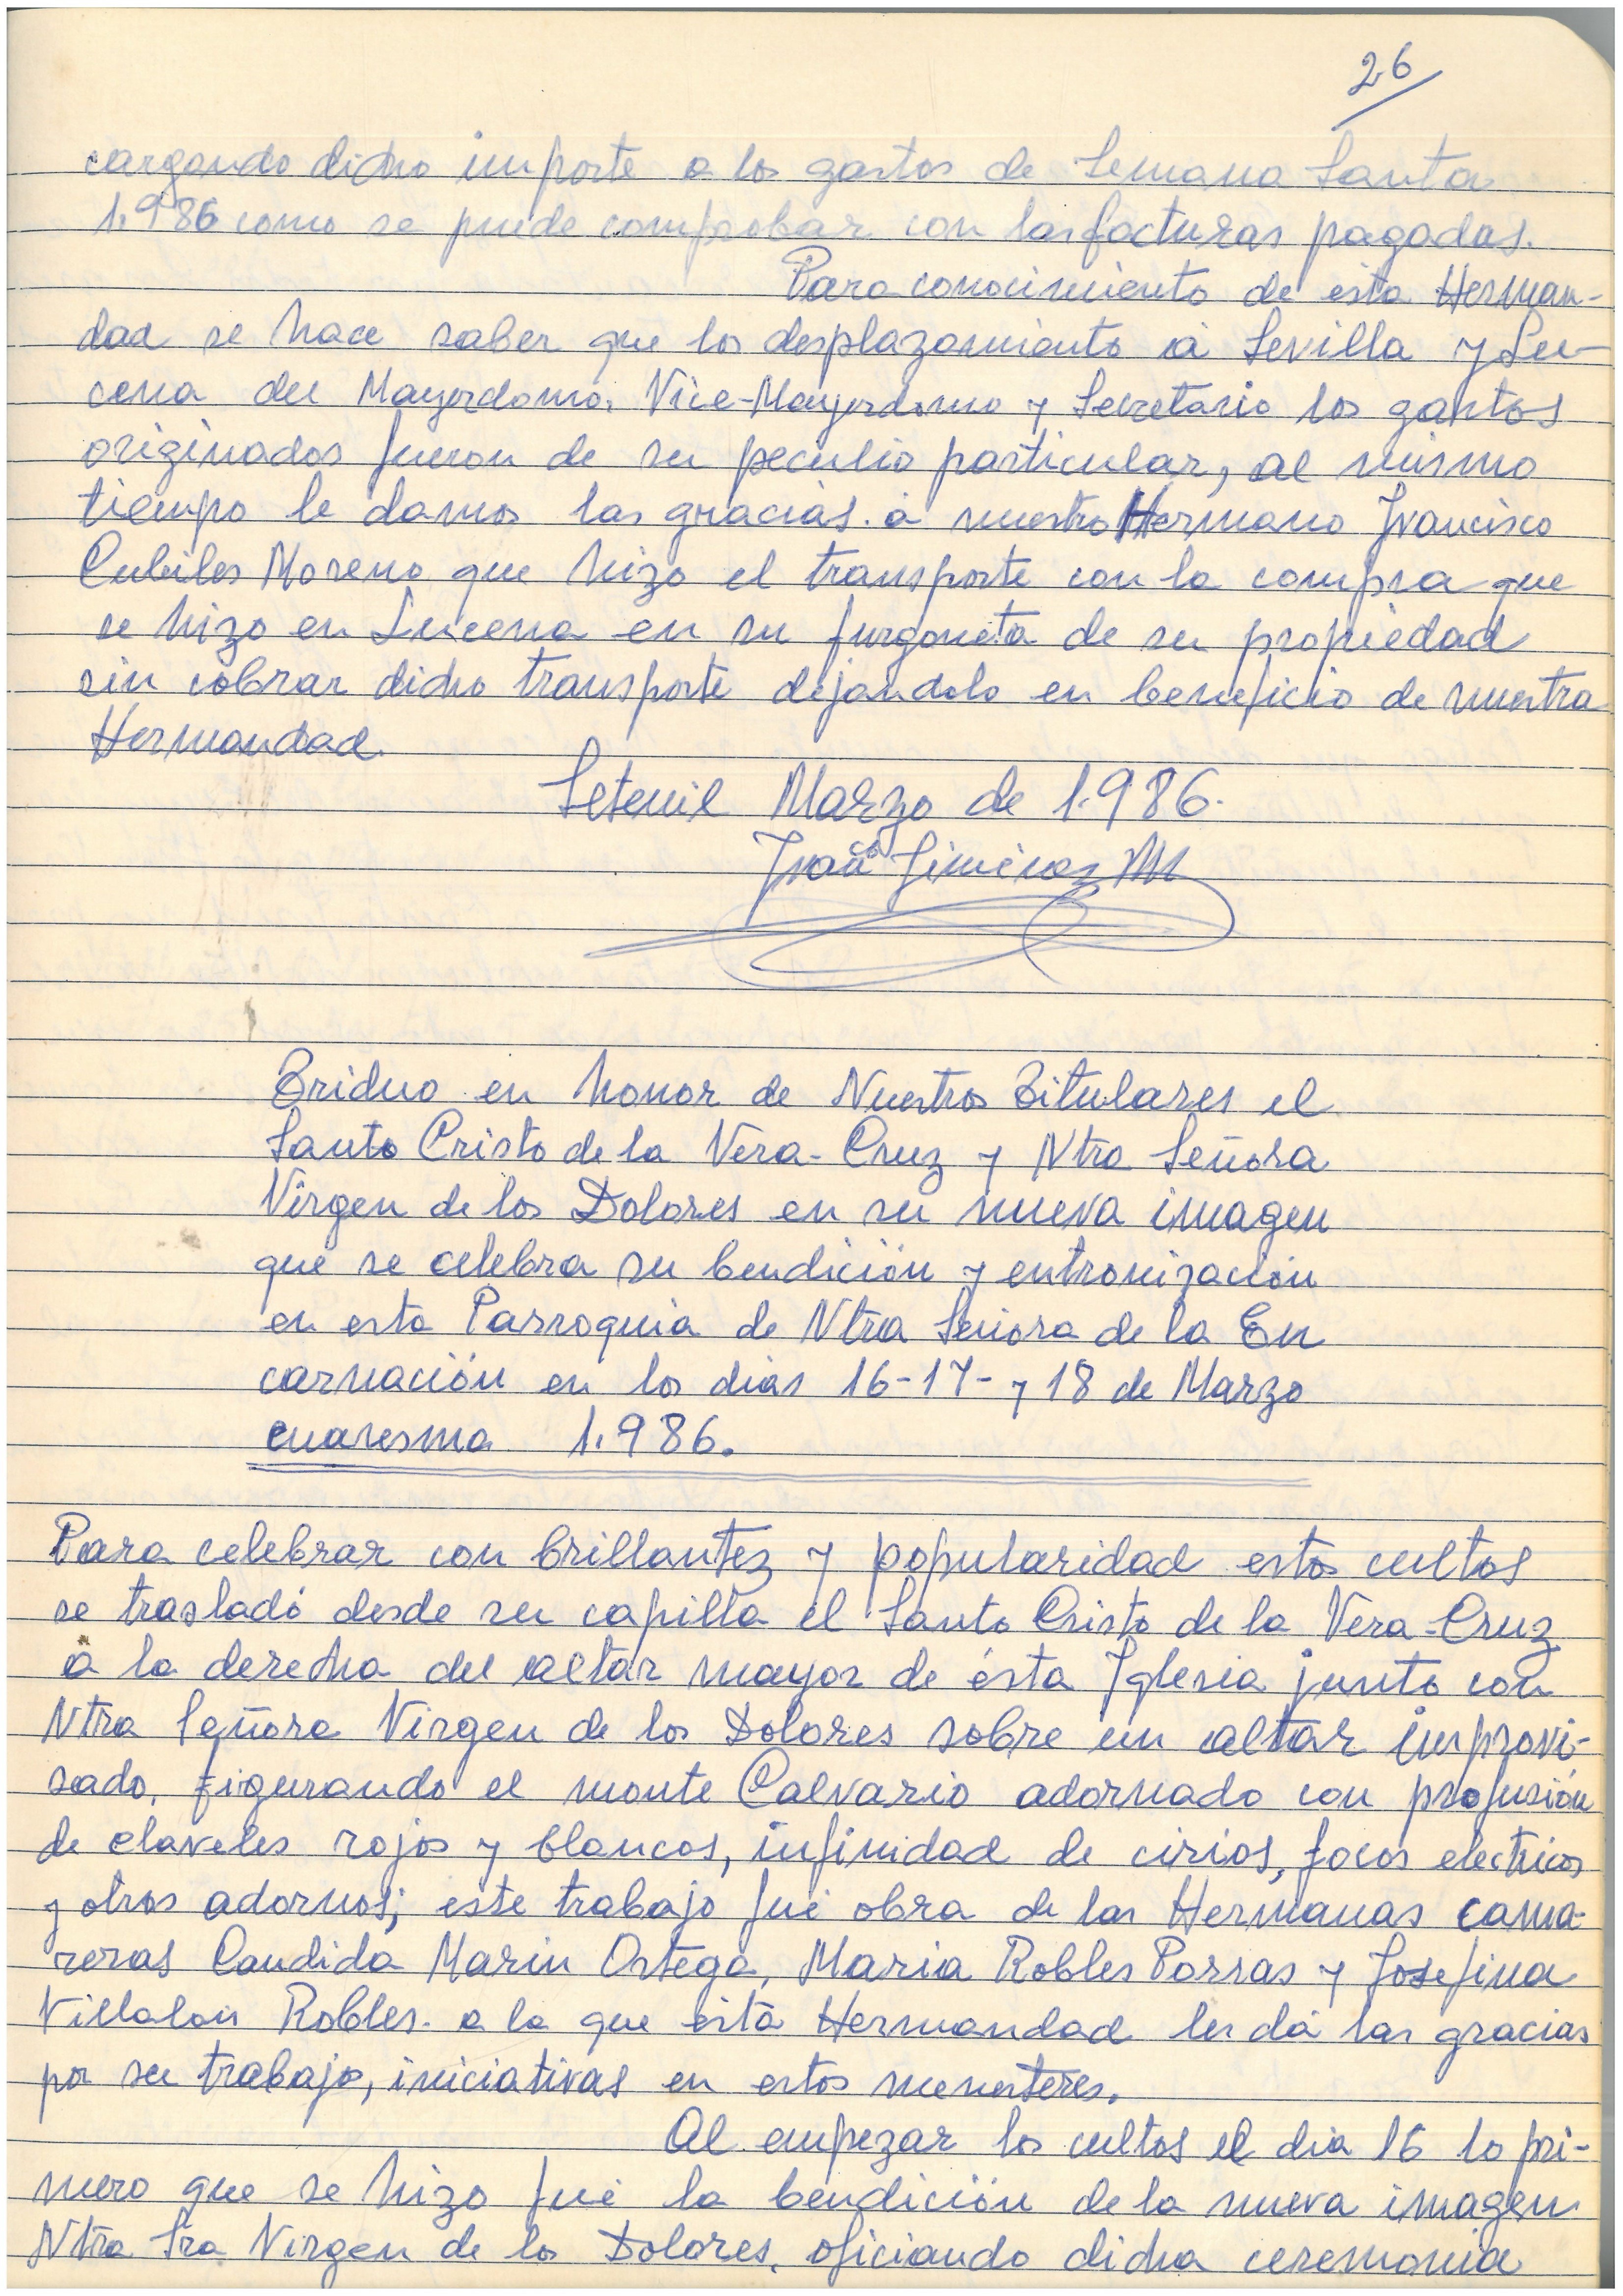 26
cargando dicho importe a los gastos de Semana Santa
1.986 como se puede comprobar con las facturas pagadas.
Para conocimiento de esta Herman-
dad se hace saber que los desplazamiento a Sevilla y Lu-
cena del Mayordomo, Vice-Mayordomo y Secretario los gastos
originados fueron de su peculio particular, al mismo
tiempo le damos las gracias a nuestro Hermano Francisco
Cubiles Moreno que hizo el transporte con la compra que
se hizo en Lucena en su furgoneta de su propiedad
sin cobrar dicho transporte dejandolo en beneficio de nuestra
Hermandad
Setenil Marzo de 1.986.
Jimenez M
Triduo en honor de Nuestros Titulares el
Santo Cristo de la Vera-Cruz y Ntra Señora
Virgen de los Dolores en su nueva imagen
que se celebra su bendición y entronización
en esta Parroquia de Ntra Señora de la En
carnación en los dias 16-17- y 18 de Marzo
cuaresma 1.986.
Para celebrar con brillantez y popularidad estos cultos
se trasladó desde su capilla el Santo Cristo de la Vera-Cruz
a la derecha del altar mayor de ésta Iglesia junto con
Ntra Señora Virgen de los Dolores sobre un altar improvi-
sado, figurando el monte Calvario adornado con profusión
de claveles rojos y blancos, infinidad de cirios, focos electricos
y otros adornos; este trabajo fué obra de las Hermanas cama-
reras Candida Marin Ortega, Maria Robles Porras y Josefina
Villalon Robles. a la que ésta Hermandad les dá las gracias
por su trabajo, iniciativas en estos menesteres.
Al empezar los cultos el dia 16 lo pri-
mero que se hizo fué la bendición de la nueva imagen
Ntra Sra Virgen de los Dolores, oficiando dicha ceremonia